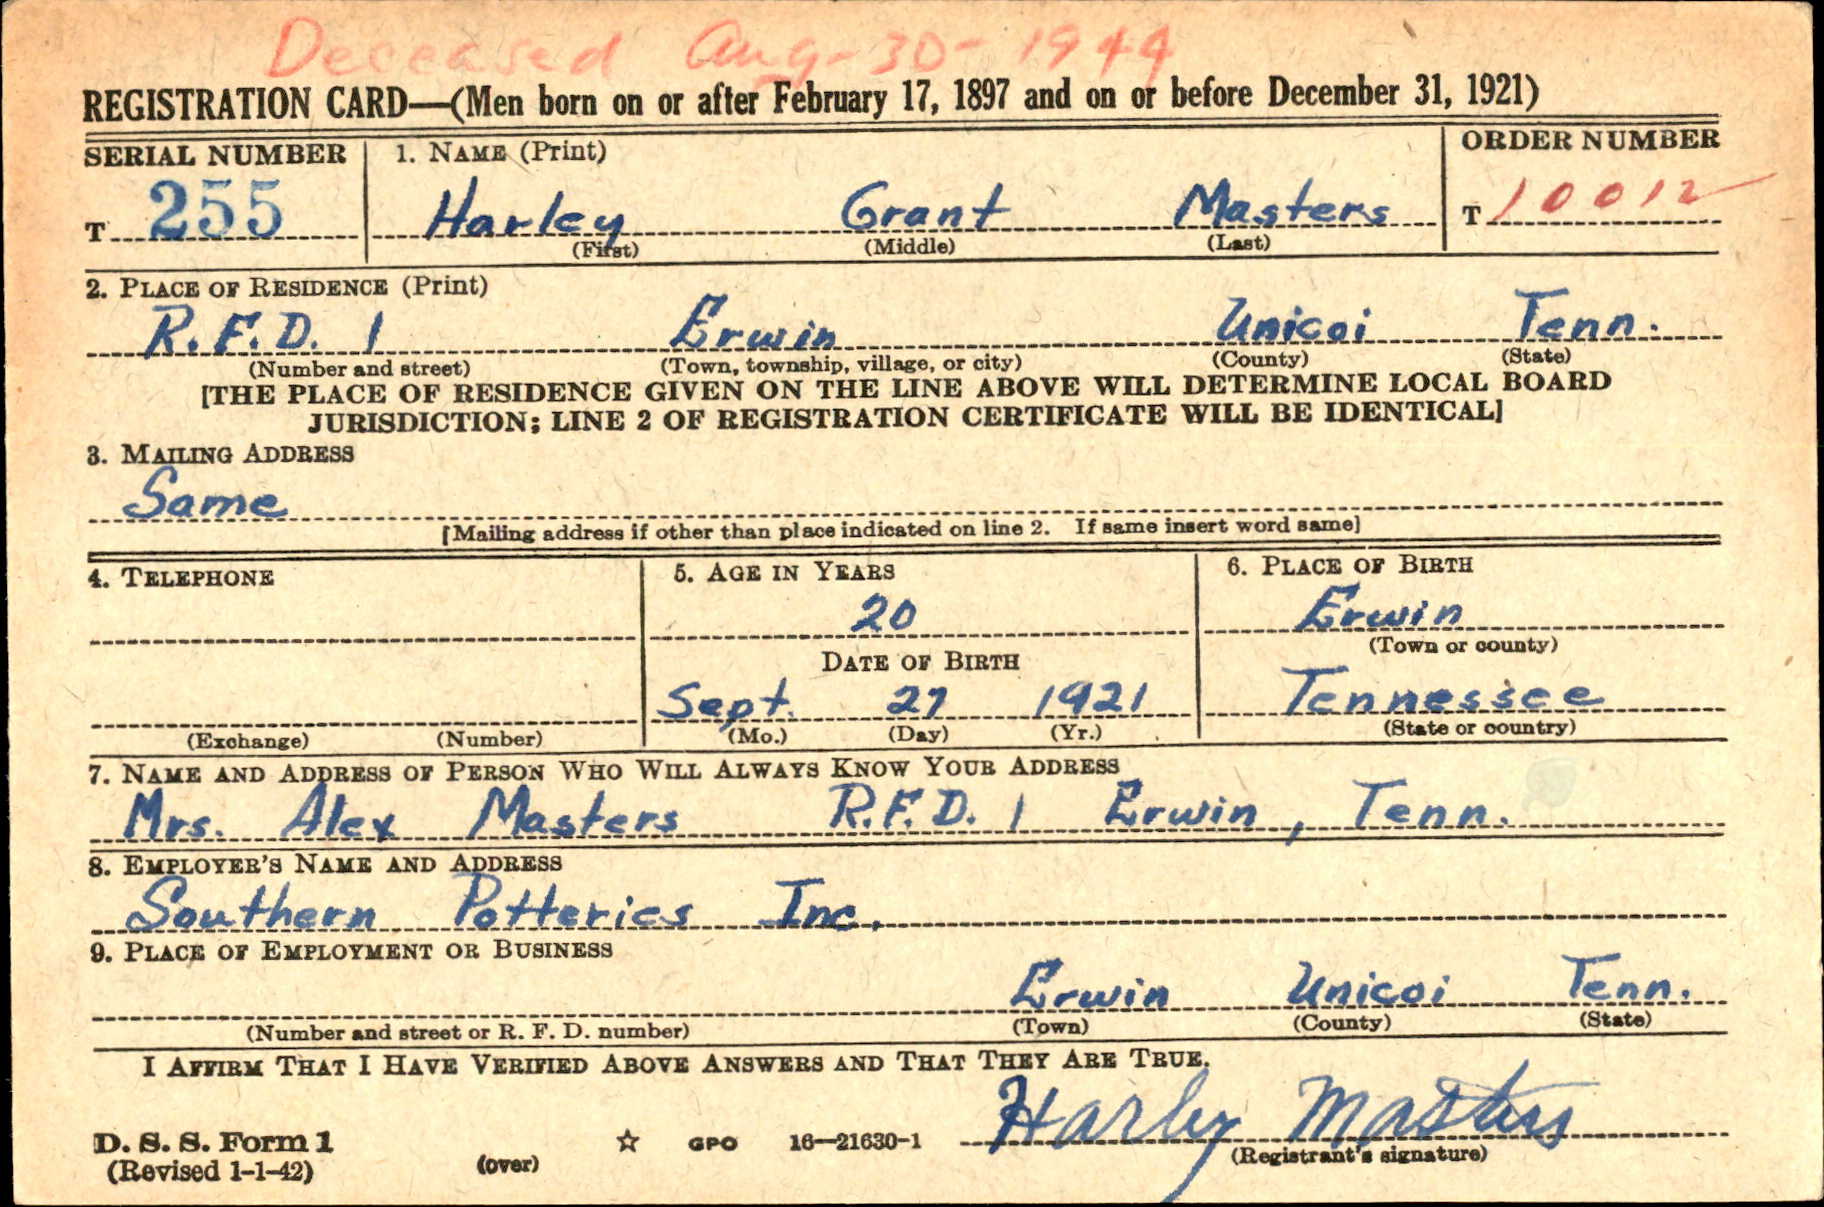 Deceased Aug-30-1944
REGISTRATION CARD—(Men born on or after February 17, 1897 and on or before December 31, 1921)
SERIAL NUMBER 1. NAME (Print) ORDER NUMBER
T 255 Harley Grant Masters T 10012
(First) (Middle) (Last)
2. PLACE OF RESIDENCE (Print)
R.F.D. 1 Erwin Unicoi Tenn.
(Number and street) (Town, township, village, or city) (County) (State)
[THE PLACE OF RESIDENCE GIVEN ON THE LINE ABOVE WILL DETERMINE LOCAL BOARD
JURISDICTION; LINE 2 OF REGISTRATION CERTIFICATE WILL BE IDENTICAL]
3. MAILING ADDRESS
Same
[Mailing address if other than place indicated on line 2. If same insert word same]
4. TELEPHONE 5. AGE IN YEARS 6. PLACE OF BIRTH
20 Erwin
(Town or county)
DATE OF BIRTH
Sept. 27 1921 Tennessee
(Exchange) (Number) (Mo.) (Day) (Yr.) (State or country)
7. NAME AND ADDRESS OF PERSON WHO WILL ALWAYS KNOW YOUR ADDRESS
Mrs. Alex Masters R.F.D. 1 Erwin, Tenn.
8. EMPLOYER'S NAME AND ADDRESS
Southern Potteries Inc.
9. PLACE OF EMPLOYMENT OR BUSINESS
Erwin Unicoi Tenn.
(Number and street or R. F. D. number) (Town) (County) (State)
I AFFIRM THAT I HAVE VERIFIED ABOVE ANSWERS AND THAT THEY ARE TRUE.
Harley Masters
D. S. S. Form 1 ☆ GPO 16—21630-1
(Revised 1-1-42) (over) (Registrant's signature)